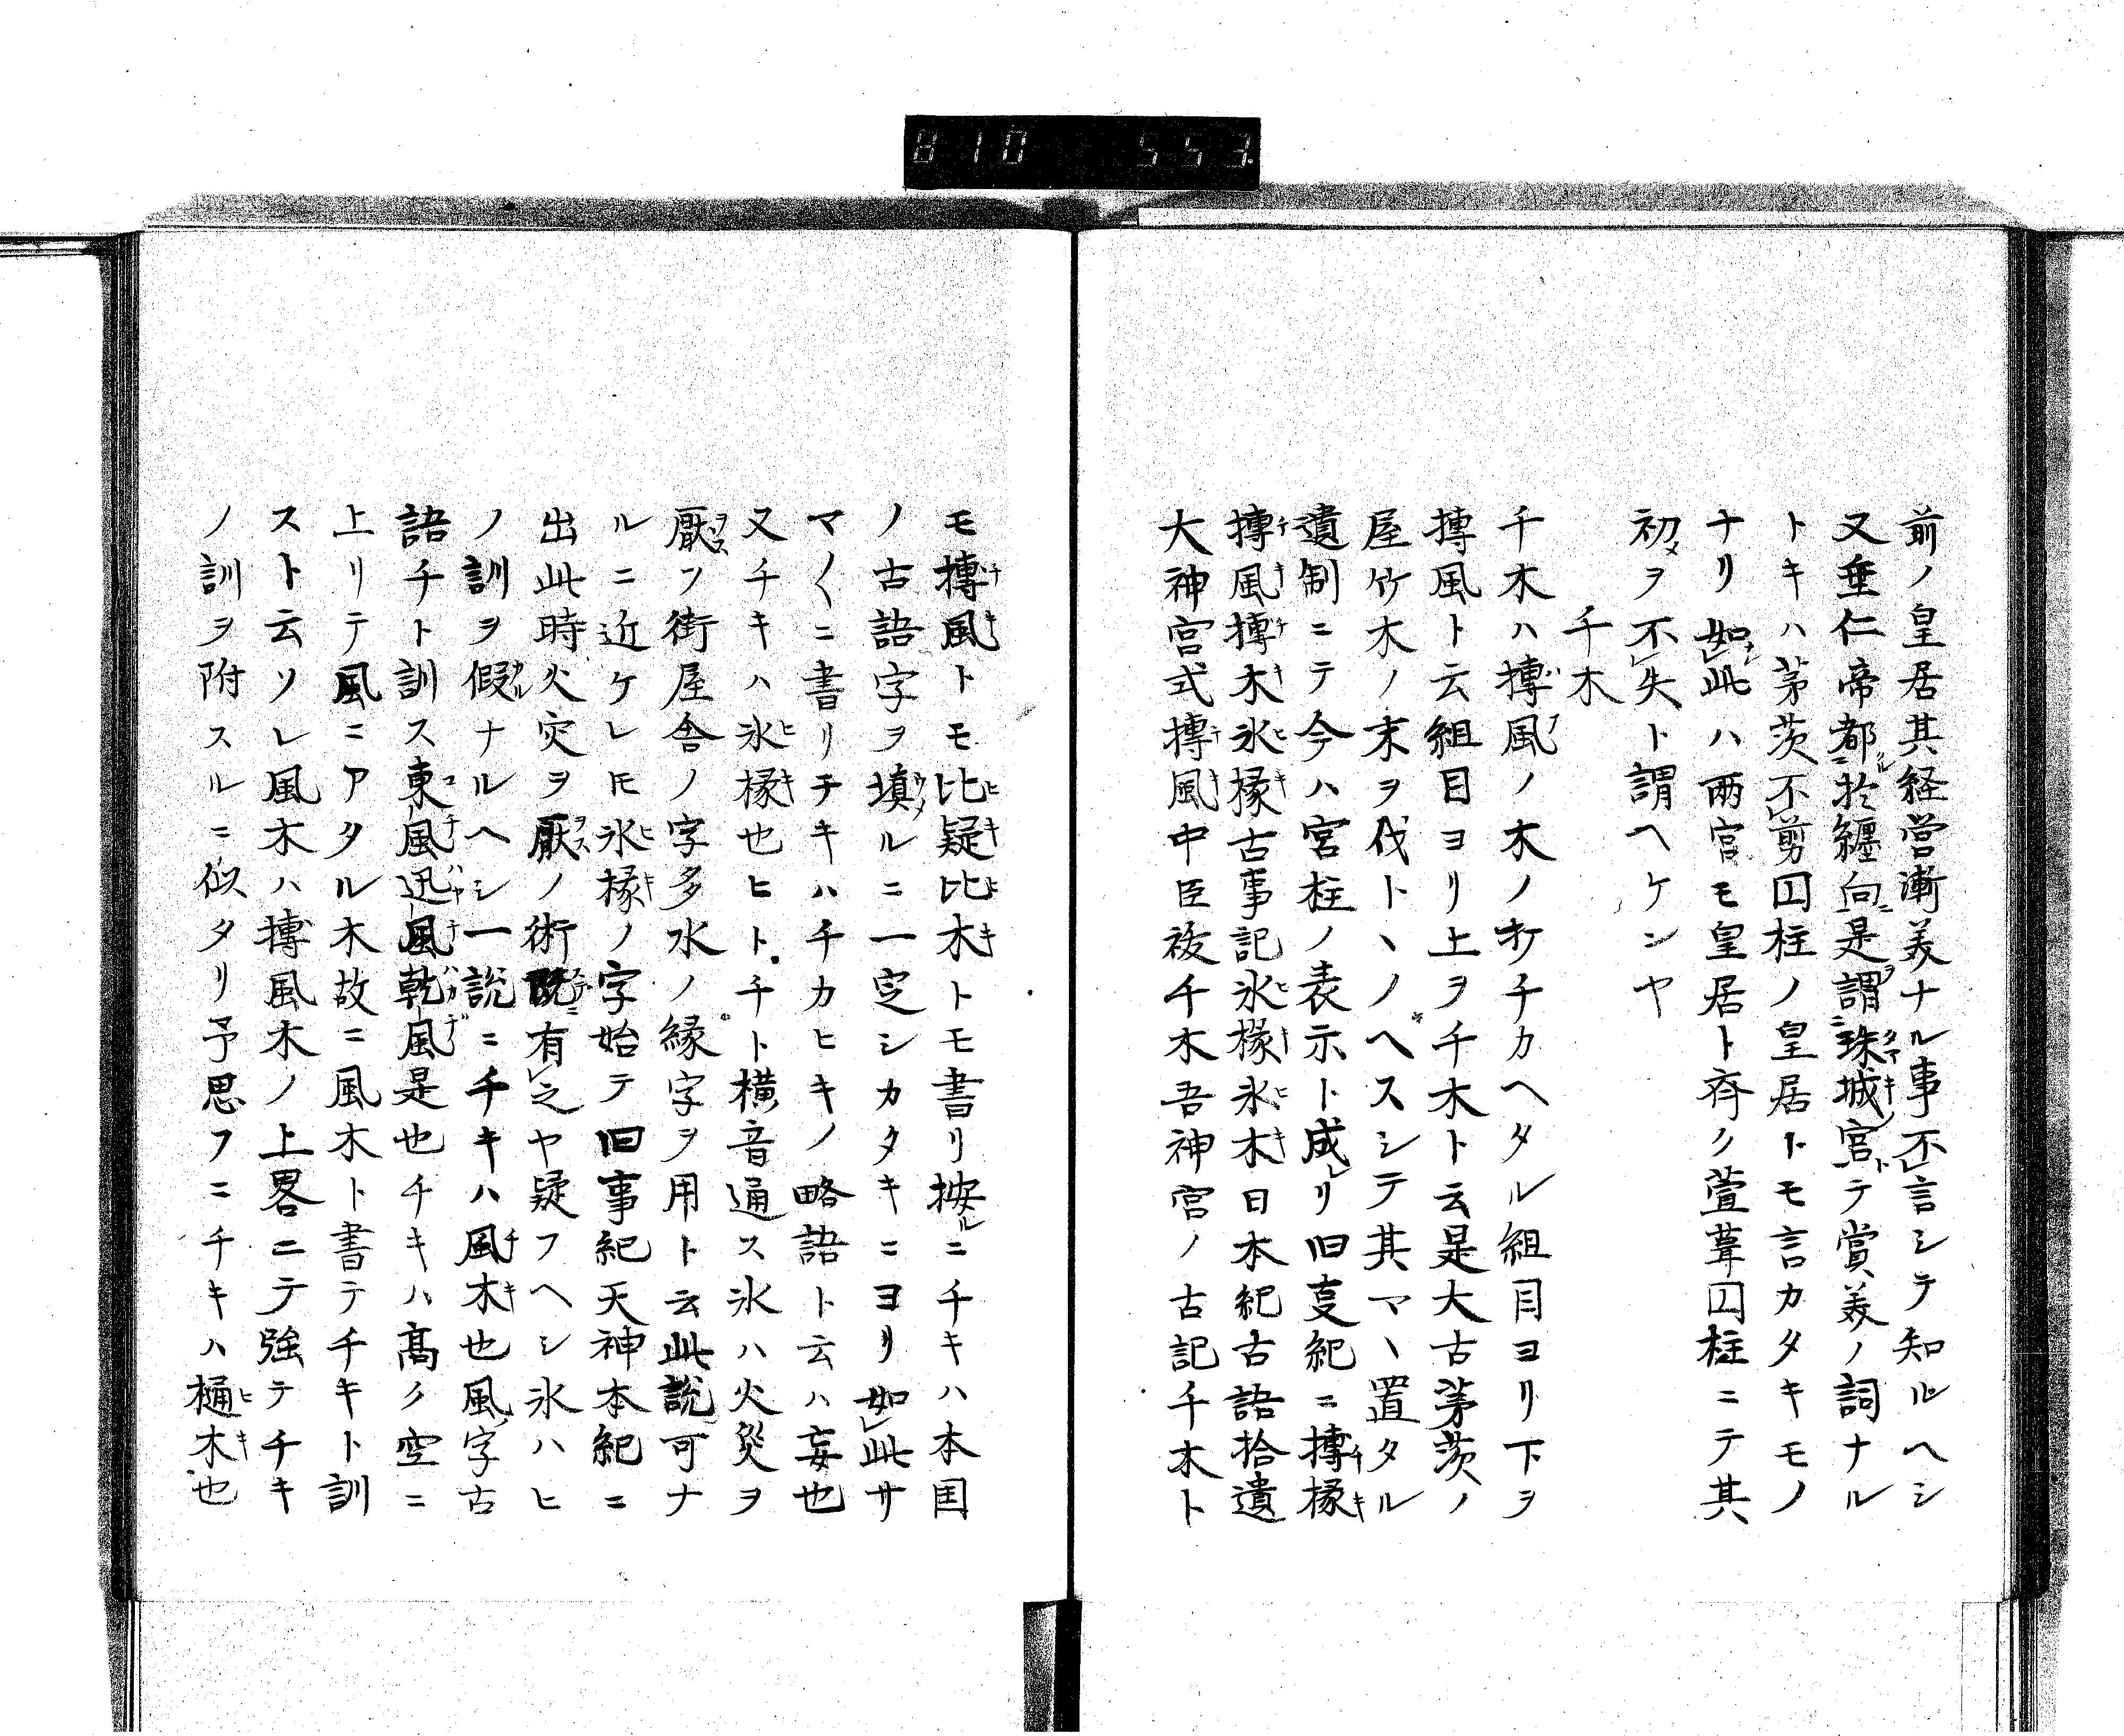 810 553.
前ノ皇居其経営漸美ナル事不言シテ知ルヘシ
又垂仁帝都ニ於纏向是謂珠城宮トテ賞美ノ詞ナル
トキハ茅茨不剪囚柱ノ皇居トモ言カタキモノ
ナリ如此ハ両宮モ皇居ト斉ク萱葺囚柱ニテ其
初メヲ不失ト謂ヘケンヤ
千木
千木ハ摶風ノ木ノ打チカヘタル組目ヨリ下ヲ
摶風ト云組目ヨリ上ヲ千木ト云是大古茅茨ノ
屋竹木ノ末ヲ伐トヽノヘスシテ其マヽ置タル
遺制ニテ今ハ宮柱ノ表示ト成レリ旧事紀ニ摶椽
摶風摶木氷椽古事記氷椽氷木日本紀古語拾遺
大神宮式摶風中臣祓千木吾神宮ノ古記千木ト
モ摶風トモ比疑比木トモ書リ按ルニチキハ本国
ノ古語字ヲ填ルニ一定シカタキニヨリ如此サ
マ〱ニ書リチキハチカヒキノ略語ト云ハ妄也
又チキハ氷椽也ヒトチト横音通ス氷ハ火災ヲ
厭フ街屋舎ノ字多水ノ縁字ヲ用ト云此説可ナ
ルニ近ケレヒ氷椽ノ字始テ旧事紀天神本紀ニ
出此時火災ヲ厭ノ術既有之ヤ疑フヘシ氷ハヒ
ノ訓ヲ假ナルヘシ一説ニ千キハ風木也風ノ字古
語チト訓ス東風迅風乾風是也チキハ髙ク空ニ
上リテ風ニアタル木故ニ風木ト書テチキト訓
スト云ソレ風木ハ摶風木ノ上畧ニテ強テチキ
ノ訓ヲ附スルニ似タリ予思フニチキハ樋木也